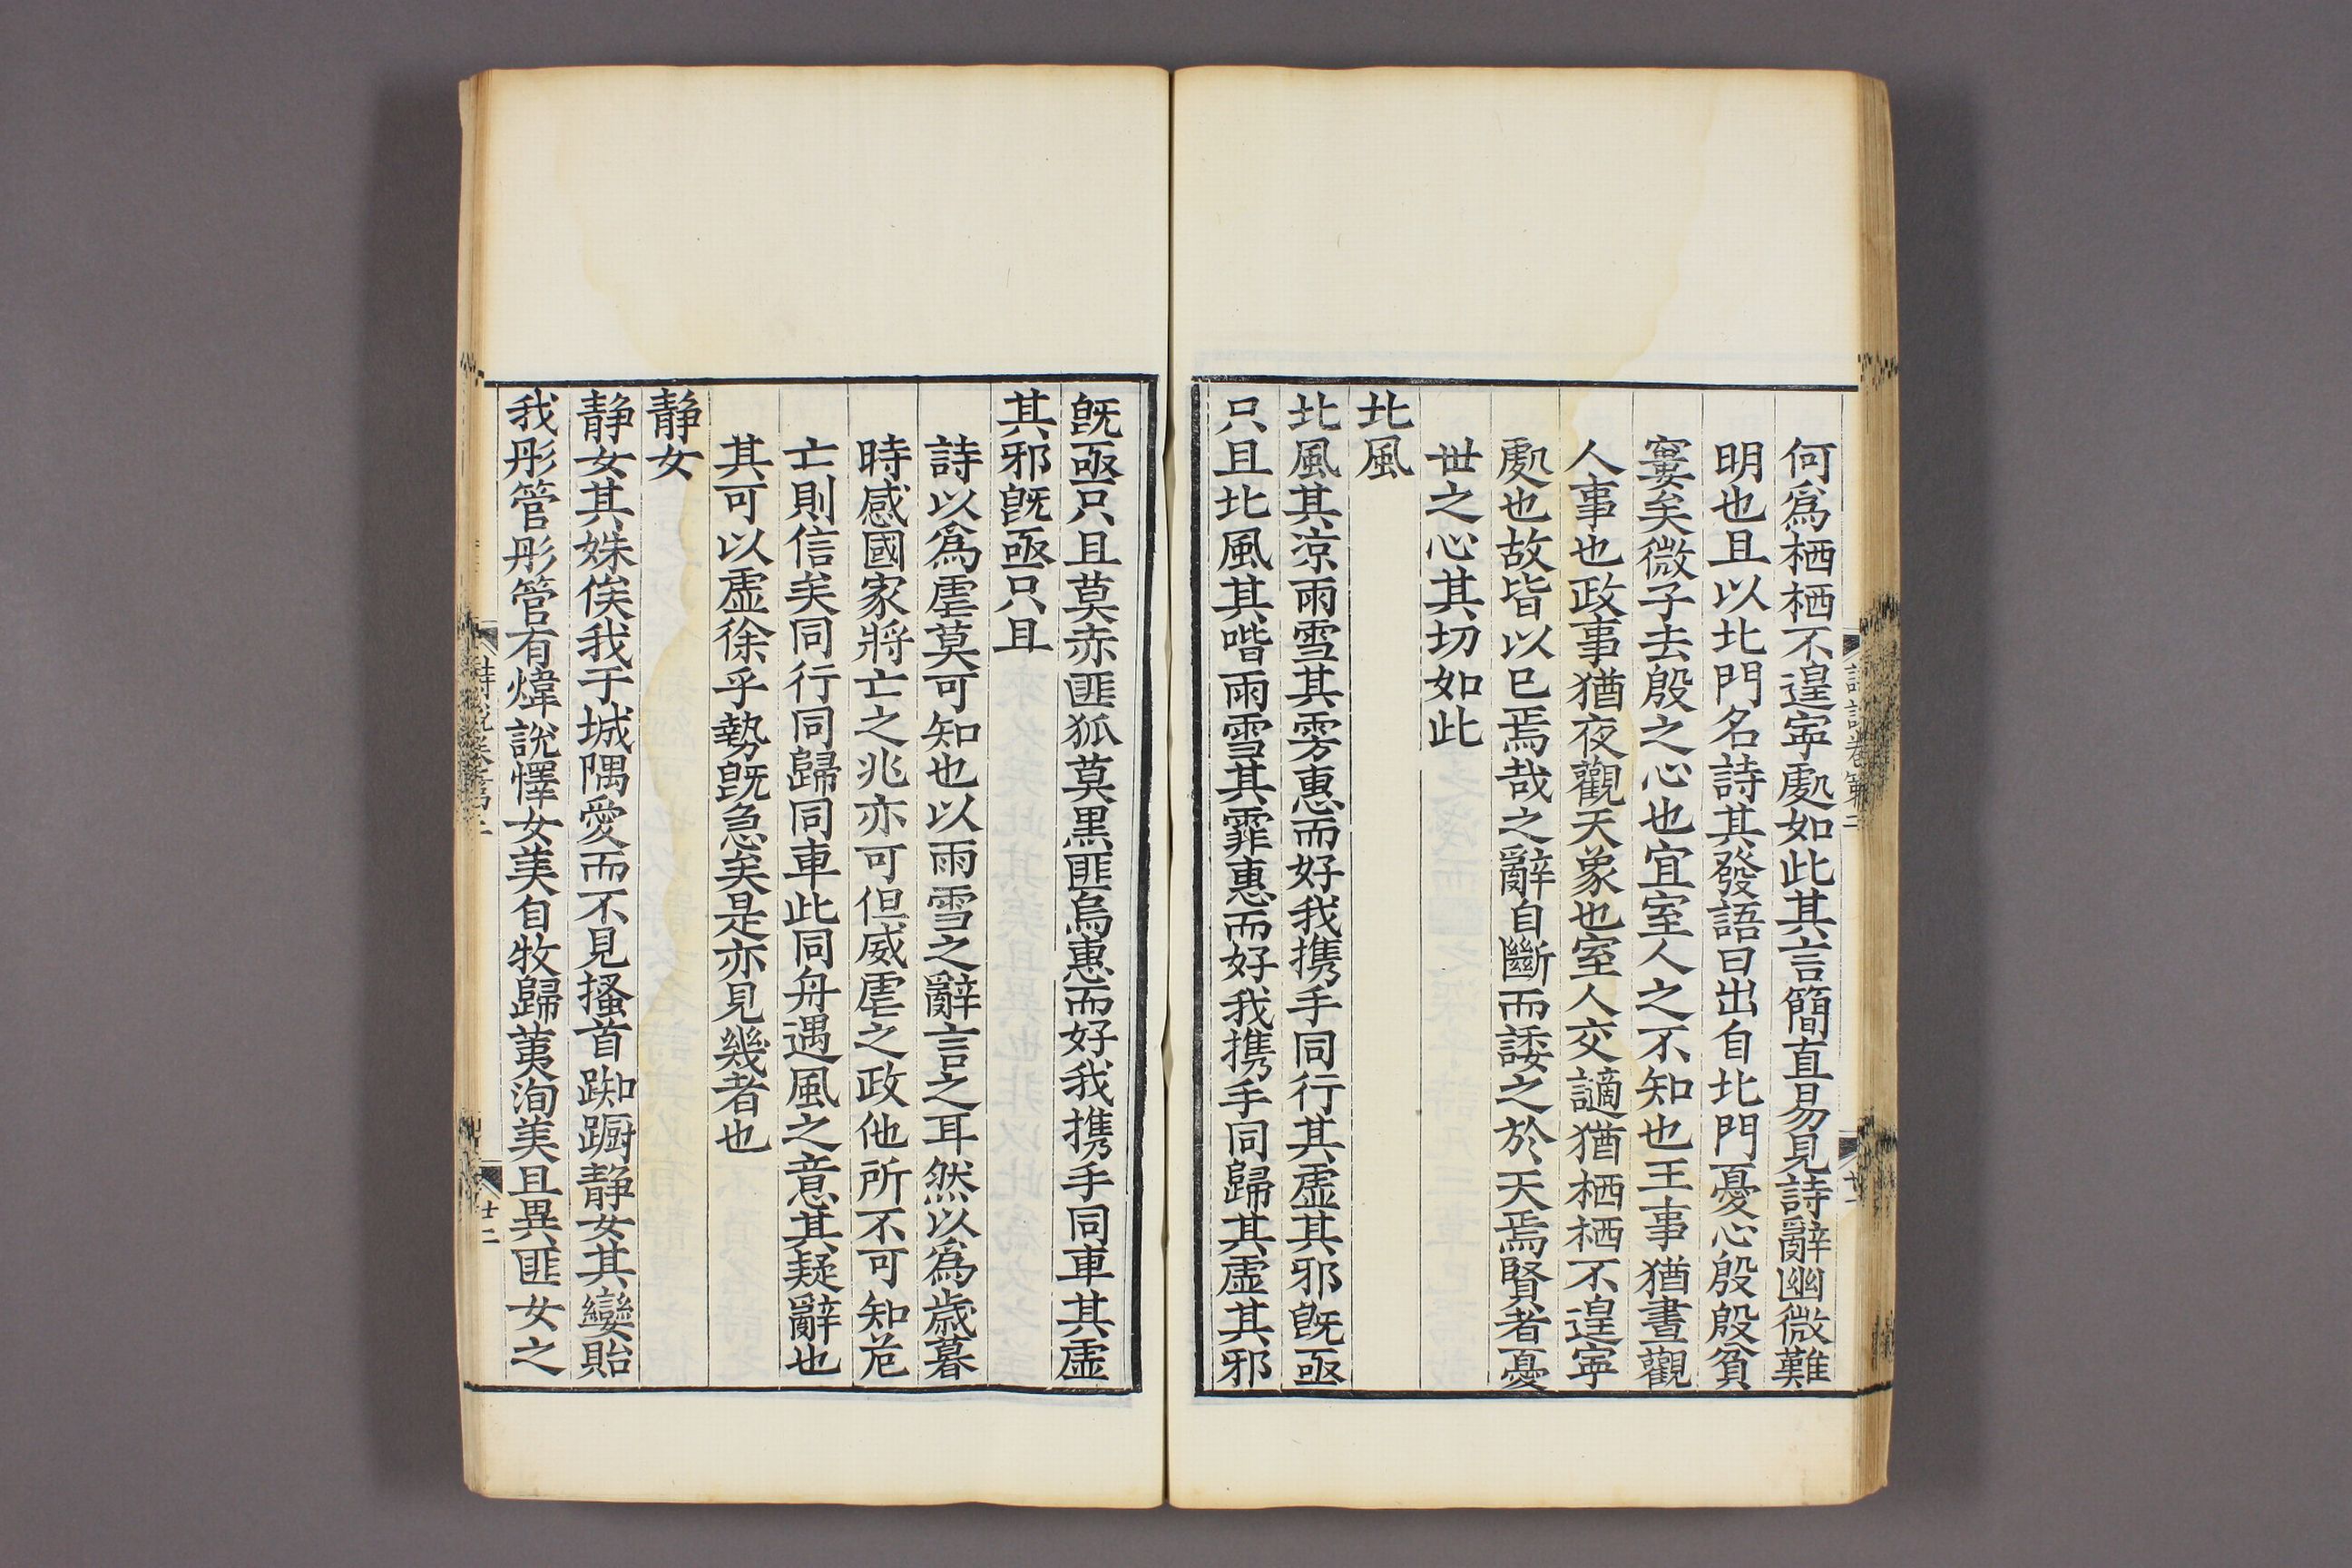 何爲栖栖不遑寜處如此其言簡直易見詩辭幽微難
明也且以北門名詩其發語曰出自北門憂心殷殷貧
窶矣微子去殷之心也宜室人之不知也王事猶晝觀
人事也政事猶夜觀天象也室人交謫猶栖栖不遑寜
處也故皆以已焉哉之辭自斷而諉之於天焉賢者憂
世之心其切如此
北風
北風其凉雨雪其雱惠而好我携手同行其虚其邪旣亟
只且北風其喈雨雪其霏惠而好我携手同歸其虚其邪
旣亟只且莫赤匪狐莫黒匪烏惠而好我携手同車其虚
其邪旣亟只且
詩以爲虐莫可知也以雨雪之辭言之耳然以爲歳暮
時感國家將亡之兆亦可但威虐之政他所不可知危
亡則信矣同行同歸同車此同舟遇風之意其疑辭也
其可以虚徐乎勢旣急矣是亦見幾者也
静女
静女其姝俟我于城隅愛而不見搔首踟蹰静女其孌貽
我彤管彤管有煒說懌女美自牧歸荑洵美且異匪女之
詩說卷第二
廿二